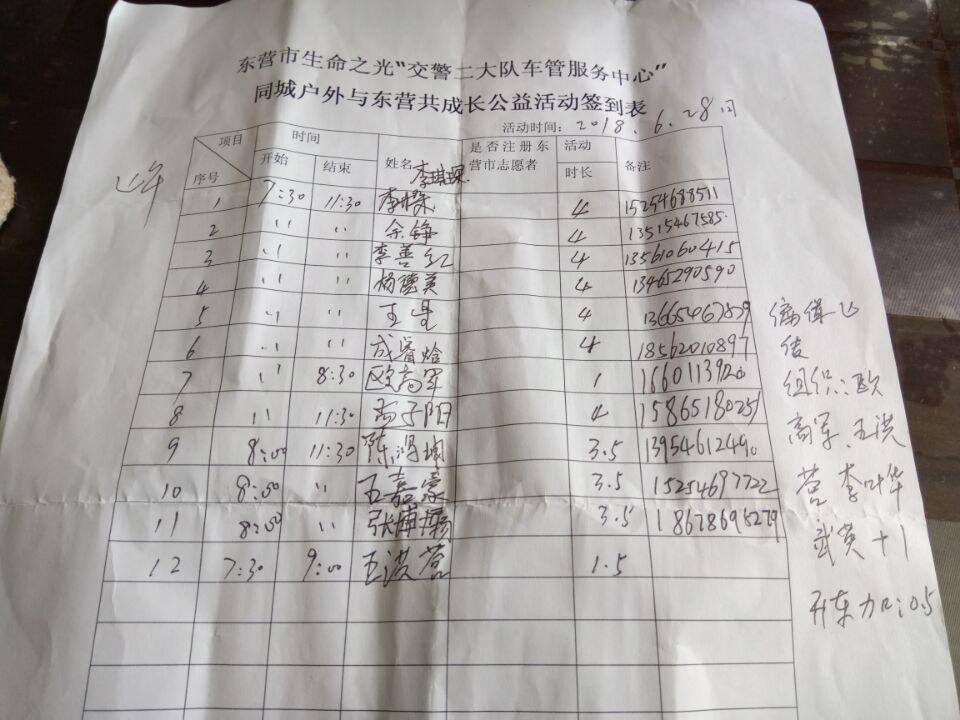 东营市生命之光“交警二大队车管服务中心”
同城户外与东营共成长公益活动签到表
活动时间：2018.6.28日
上午
项目 序号 时间 开始 结束 姓名 是否注册东营市志愿者 活动时长 备注
李琪琛
1 7:30 11:30 4 15254688511
2 〃 〃 余铮 4 13515467585
3 〃 〃 李善红 4 13561060415
4 〃 〃 杨德英 4 13465290590
5 〃 〃 王星 4 13665467829
6 〃 〃 成睿焓 4 18562010897
7 〃 8:30 欧高军 1 16601139120
8 〃 11:30 孟子阳 4 15865180251
9 8:00 11:30 陈鸿 3.5 13954612490
10 8:00 〃 王嘉豪 3.5 15254697722
11 8:00 〃 张博扬 3.5 18678695279
12 7:30 9:00 王洪营 1.5
组织：欧
高军、王洪
营 李叶华
武英 +1
开车加:0.5